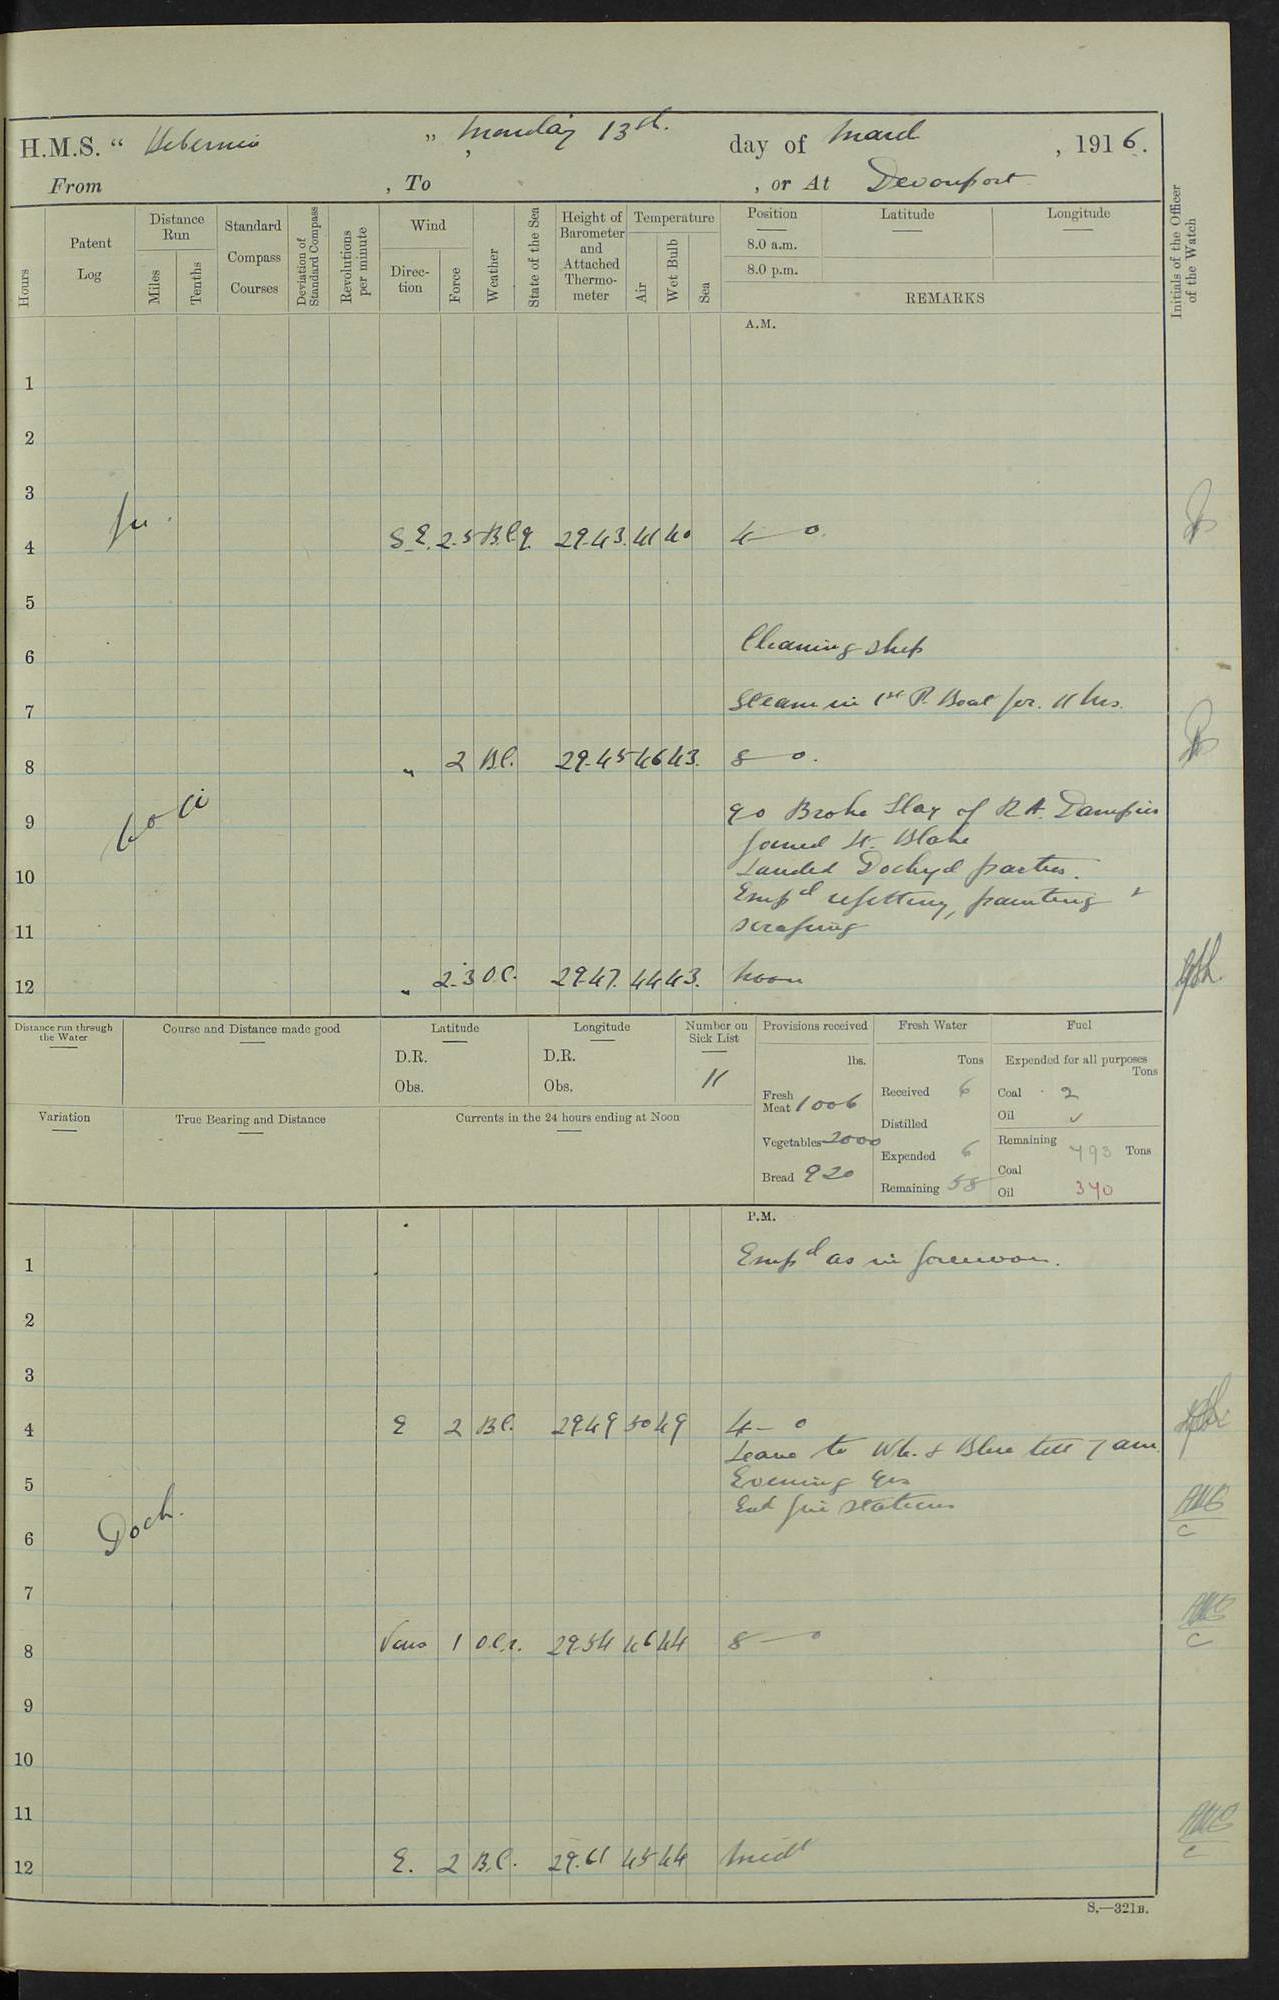 H.M.S. “ Hibernia ” , Monday 13th. day of March , 1916.
From , To , or At Devonport
Hours
Patent Log
Distance Run
Miles
Tenths
Standard Compass Courses
Deviation of Standard Compass
Revolutions per minute
Wind
Direction
Force
Weather
State of the Sea
Height of Barometer and Attached Thermometer
Temperature
Air
Wet Bulb
Sea
Position
8.0 a.m.
8.0 p.m.
Latitude
Longitude
REMARKS
Initials of the Officer of the Watch
A.M.
1
2
3
4 S.E. 2-5 B.C.q. 29.43. 41 40 4 – 0
5
6 Cleaning ship
7 Steam in 1st P. Boat for. 11 hrs.
8 " 2 B.C. 29.45 46 43. 8 – 0.
9 9.0 Broke Flag of R.A. Dampier
Joined Lt. Blake
10 Landed Dockyd parties.
11 Empd refitting, painting &
scraping
12 " 2-3 O.C. 29.47. 44 43. Noon
Distance run through the Water
Course and Distance made good
Latitude
D.R.
Obs.
Longitude
D.R.
Obs.
Number on Sick List
11
Variation
True Bearing and Distance
Currents in the 24 hours ending at Noon
Provisions received
lbs.
Fresh Meat 1006
Vegetables 2000
Bread 920
Fresh Water
Tons
Received 6
Distilled
Expended 6
Remaining 58
Fuel
Expended for all purposes
Tons
Coal 2
Oil ✓
Remaining
Tons
Coal 793
Oil 370
P.M.
1 Empd as in forenoon.
2
3
4 E 2 B.C. 29.49 50 49 4 – 0
Leave to Wh. & Blue till 7 am.
5 Evening Qrs
Exd fire stations
6 Dock.
7
8 Vars 1 O.C.r. 29.54 46 44 8 – 0
9
10
11
12 E. 2 B.C. 29.61 45 44 Midt
S.—321B.